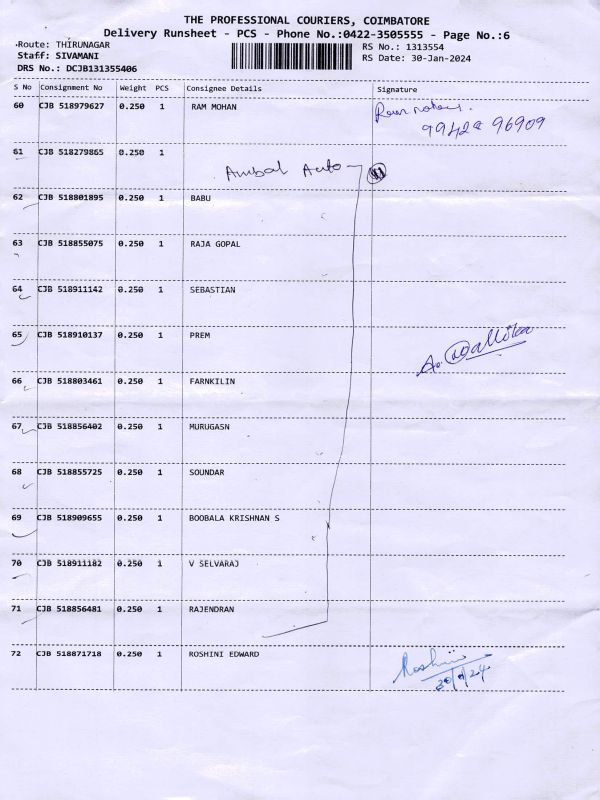 THE PROFESSIONAL COURIERS, COIMBATORE
Delivery Runsheet - PCS - Phone No.:0422-3505555 - Page No.:6
Route: THIRUNAGAR RS No.: 1313554
Staff: SIVAMANI RS Date: 30-Jan-2024
DRS No.: DCJB131355406
S No Consignment No Weight PCS Consignee Details Signature
60 CJB 518979627 0.250 1 RAM MOHAN
61 CJB 518279865 0.250 1
Ambal Auto
62 CJB 518801895 0.250 1 BABU
63 CJB 518855075 0.250 1 RAJA GOPAL
64 CJB 518911142 0.250 1 SEBASTIAN
65 CJB 518910137 0.250 1 PREM
66 CJB 518803461 0.250 1 FARNKILIN
67 CJB 518856402 0.250 1 MURUGASN
68 CJB 518855725 0.250 1 SOUNDAR
69 CJB 518909655 0.250 1 BOOBALA KRISHNAN S
70 CJB 518911182 0.250 1 V SELVARAJ
71 CJB 518856481 0.250 1 RAJENDRAN
72 CJB 518871718 0.250 1 ROSHINI EDWARD